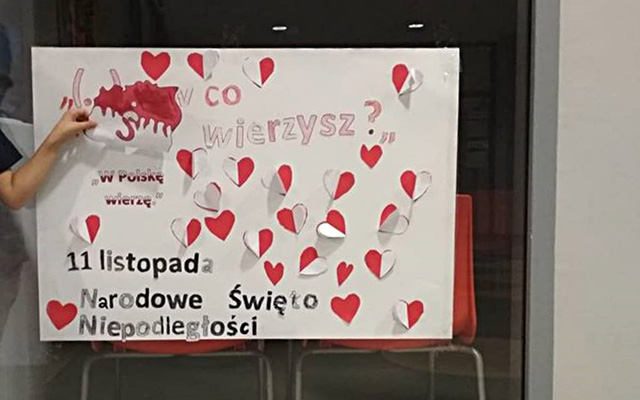 w co
wierzysz?"
„W Polskę
wierzę."
11 listopada
Narodowe Święto
Niepodległości